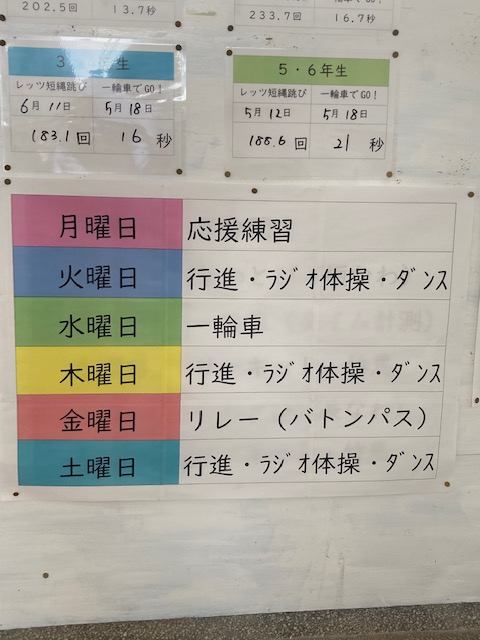 202.5回 13.7秒
233.7回 16.7秒
3 生
レッツ短縄跳び 一輪車でGO!
6月 11日 5月 18日
183.1回 16秒
5・6年生
レッツ短縄跳び 一輪車でGO!
5月 12日 5月 18日
188.6回 21秒
月曜日 応援練習
火曜日 行進・ラジオ体操・ダンス
水曜日 一輪車
木曜日 行進・ラジオ体操・ダンス
金曜日 リレー（バトンパス）
土曜日 行進・ラジオ体操・ダンス